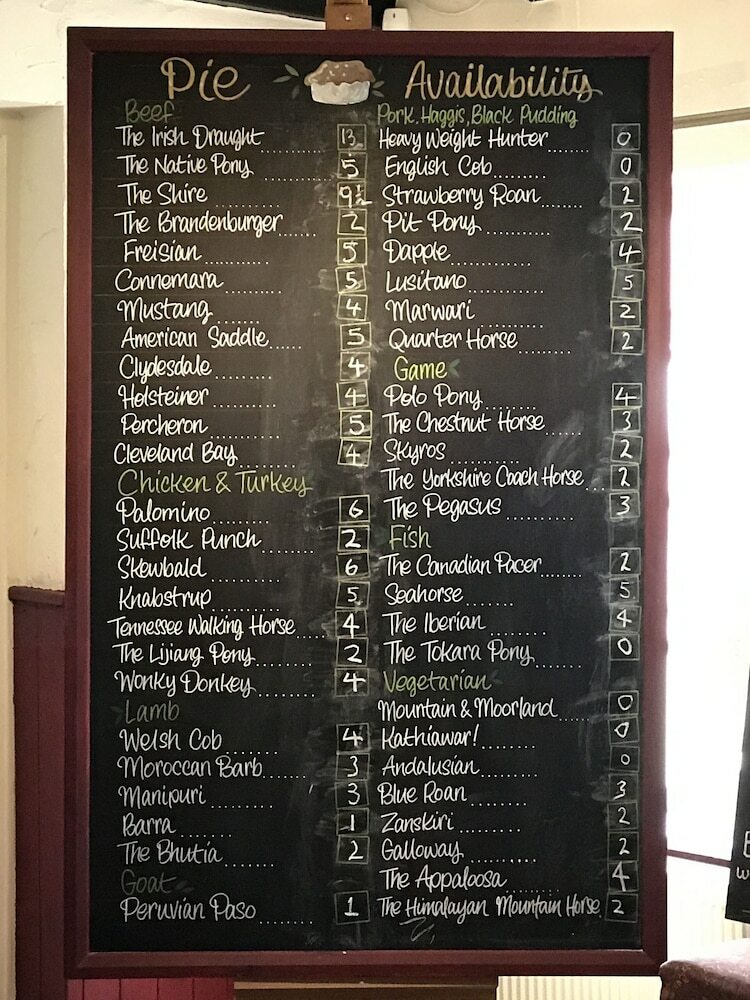 Pie Availability
Beef
The Irish Draught 13
The Native Pony 5
The Shire 9½
The Brandenburger 2
Freisian 5
Connemara 5
Mustang 4
American Saddle 5
Clydesdale 4
Holsteiner 4
Percheron 5
Cleveland Bay 4
Chicken & Turkey
Palomino 6
Suffolk Punch 2
Skewbald 6
Knabstrup 5
Tennessee Walking Horse 4
The Lijiang Pony 2
Wonky Donkey 4
Lamb
Welsh Cob 4
Moroccan Barb 3
Manipuri 3
Barra 1
The Bhutia 2
Goat
Peruvian Paso 1
Pork, Haggis, Black Pudding
Heavy Weight Hunter 0
English Cob 0
Strawberry Roan 2
Pit Pony 2
Dapple 4
Lusitano 5
Marwari 2
Quarter Horse 2
Game
Polo Pony 4
The Chestnut Horse 3
Skyros 2
The Yorkshire Coach Horse 2
The Pegasus 3
Fish
The Canadian Pacer 2
Seahorse 5
The Iberian 4
The Tokara Pony 0
Vegetarian
Mountain & Moorland 0
Kathiawar! 0
Andalusian 0
Blue Roan 3
Zanskiri 2
Galloway 2
The Appaloosa 4
The Himalayan Mountain Horse 2